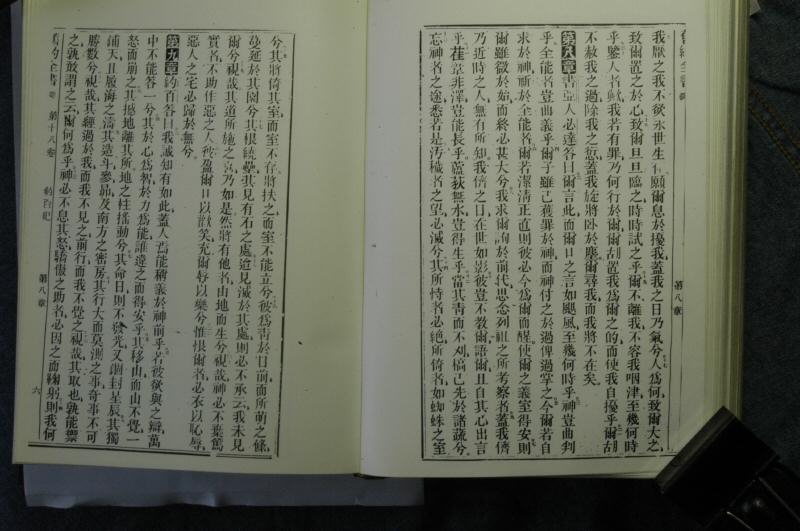 舊約全書
第八章
我厭之我不欲永世生
願爾息於擾我蓋我之日乃氣兮人爲何致爾大之
致爾置之於心致爾旦旦臨之時時試之乎爾不離我不容我咽津至幾何時
乎鑒人者歟我若有罪乃何行於爾爾胡置我爲爾之的而使我自擾乎爾胡
不赦我之過除我之愆蓋我將卧於塵爾尋我而我將不在矣
第八章書亞人必達答曰爾言此而爾口之言如颶風至幾何時乎神豈曲判
乎全能者豈曲義乎爾子雖已獲罪於神而神付之於過俾過掌之今爾若自
求於神祈於全能者爾若潔清正直則彼必今爲爾而醒使爾之義室得安則
爾雖微於始而終必甚大兮我求爾詢於前代思念列祖之所考察者蓋我儕
乃近時之人無有所知我儕之日在世如影彼豈不教爾語爾且自其心出言
乎萑葦非澤豈能長乎蘆荻無水豈得生乎當其靑而不刈槁已先於諸蔬兮
忘神者之途悉若是汚穢者之望必滅兮其所恃者必絶所倚者如蜘蛛之室
兮其將倚其室而室不存將扶之而室不能立兮彼爲靑於日前而所萌之條
蔓延於其園兮其根繞壘其見有石之處迨見滅於其處則必不承云我未見
爾兮視哉其道所施之喜乃如是然將有他者由地而生兮視哉神必不棄篤
實者不助作惡之人致盈爾口以歡笑充爾脣以樂兮惟恨爾者必衣以恥辱
惡人之宅必歸於無兮
第九章約百答曰我誠知有如此蓋人焉能稱義於神前乎若彼欲與之辯萬
中不能答一兮其於心爲智於力爲能誰違之而得安乎其移山而山不覺一
怒而崩之其撼地離其所地之柱搖動兮其命日則不發光又調封星辰其獨
鋪天且履海之濤其造斗參昴及南方之密房其行大而莫測之事奇事不可
勝數兮視哉其經過於我而我不見之前行而我不覺之視哉其取也孰能禦
之孰敢謂之云爾何爲乎神必不息其怒驕傲之助者必因之而鞠躬則我何
舊約全書
第十八卷
約百記
第八章
六